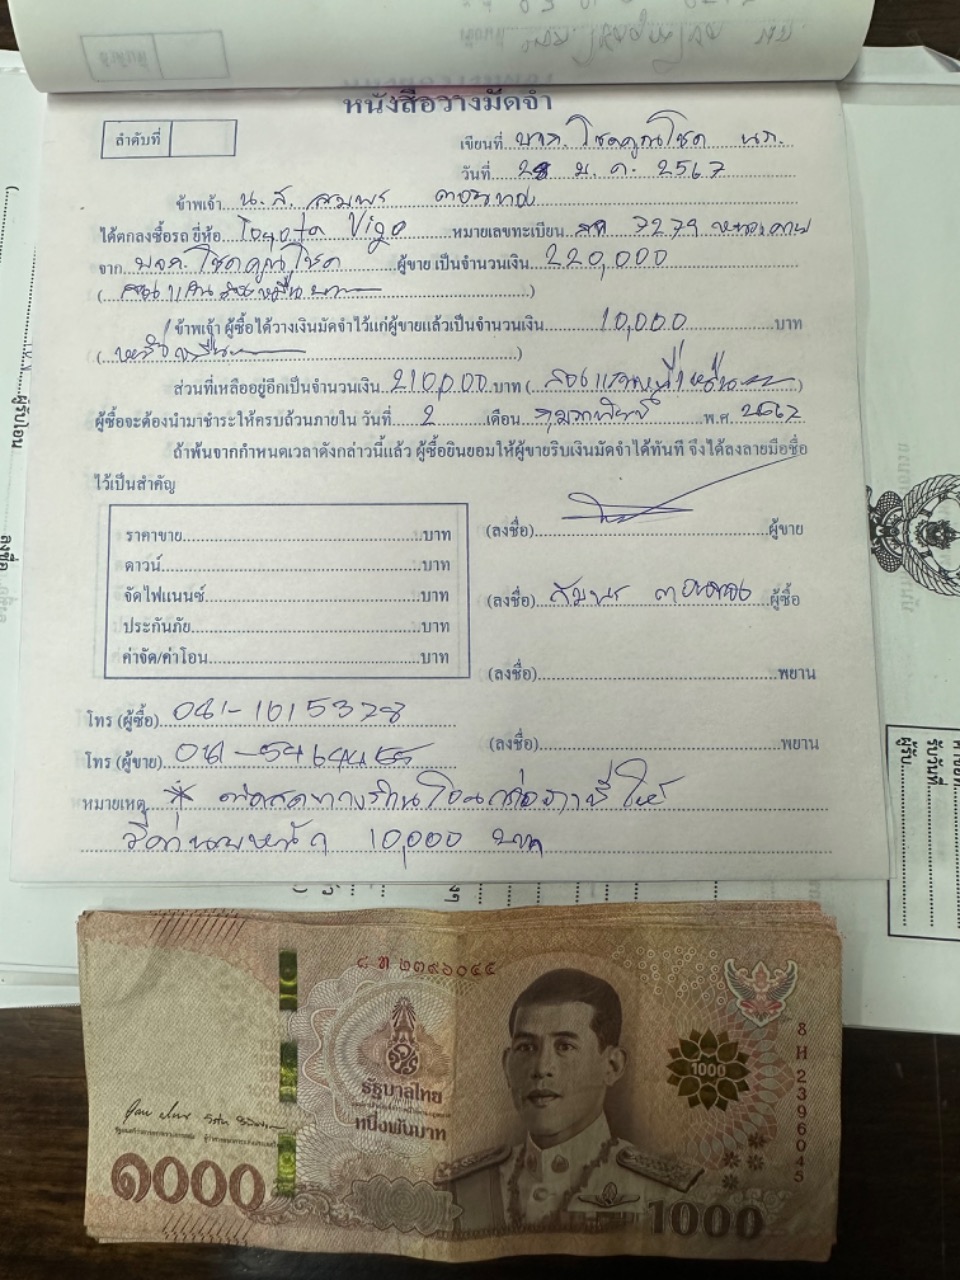 หนังสือวางมัดจำ
ลำดับที่
เขียนที่ บจก. โชคคูณโชค นภ.
วันที่ 28 ม.ค. 2567
ข้าพเจ้า น.ส. สมพร
ได้ตกลงซื้อรถ ยี่ห้อ Toyota Vigo หมายเลขทะเบียน 7279 หนองคาย
จาก บจก. โชคคูณโชค ผู้ขาย เป็นจำนวนเงิน 220,000
(สองแสนสองหมื่นบาท)
ข้าพเจ้า ผู้ซื้อได้วางเงินมัดจำไว้แก่ผู้ขายแล้วเป็นจำนวนเงิน 10,000 บาท
(หนึ่งหมื่น)
ส่วนที่เหลืออยู่อีกเป็นจำนวนเงิน 210,000 บาท (สองแสนหนึ่งหมื่น)
ผู้ซื้อจะต้องนำมาชำระให้ครบถ้วนภายใน วันที่ 2 เดือน กุมภาพันธ์ พ.ศ. 2567
ถ้าพ้นจากกำหนดเวลาดังกล่าวนี้แล้ว ผู้ซื้อยินยอมให้ผู้ขายริบเงินมัดจำได้ทันที จึงได้ลงลายมือชื่อ
ไว้เป็นสำคัญ
ราคาขาย บาท
ดาวน์ บาท
จัดไฟแนนซ์ บาท
ประกันภัย บาท
ค่าจัด/ค่าโอน บาท
(ลงชื่อ) ผู้ขาย
(ลงชื่อ) ผู้ซื้อ
(ลงชื่อ) พยาน
(ลงชื่อ) พยาน
โทร (ผู้ซื้อ)
โทร (ผู้ขาย)
หมายเหตุ * ให้
10,000 บาท
ผู้รับโอน
ลงชื่อ
รับวันที่
ผู้รับ
๘ ท ๒๓๙๖๐๔๕
8 H 2396045
1000
รัฐบาลไทย
หนึ่งพันบาท
๑๐๐๐
1000